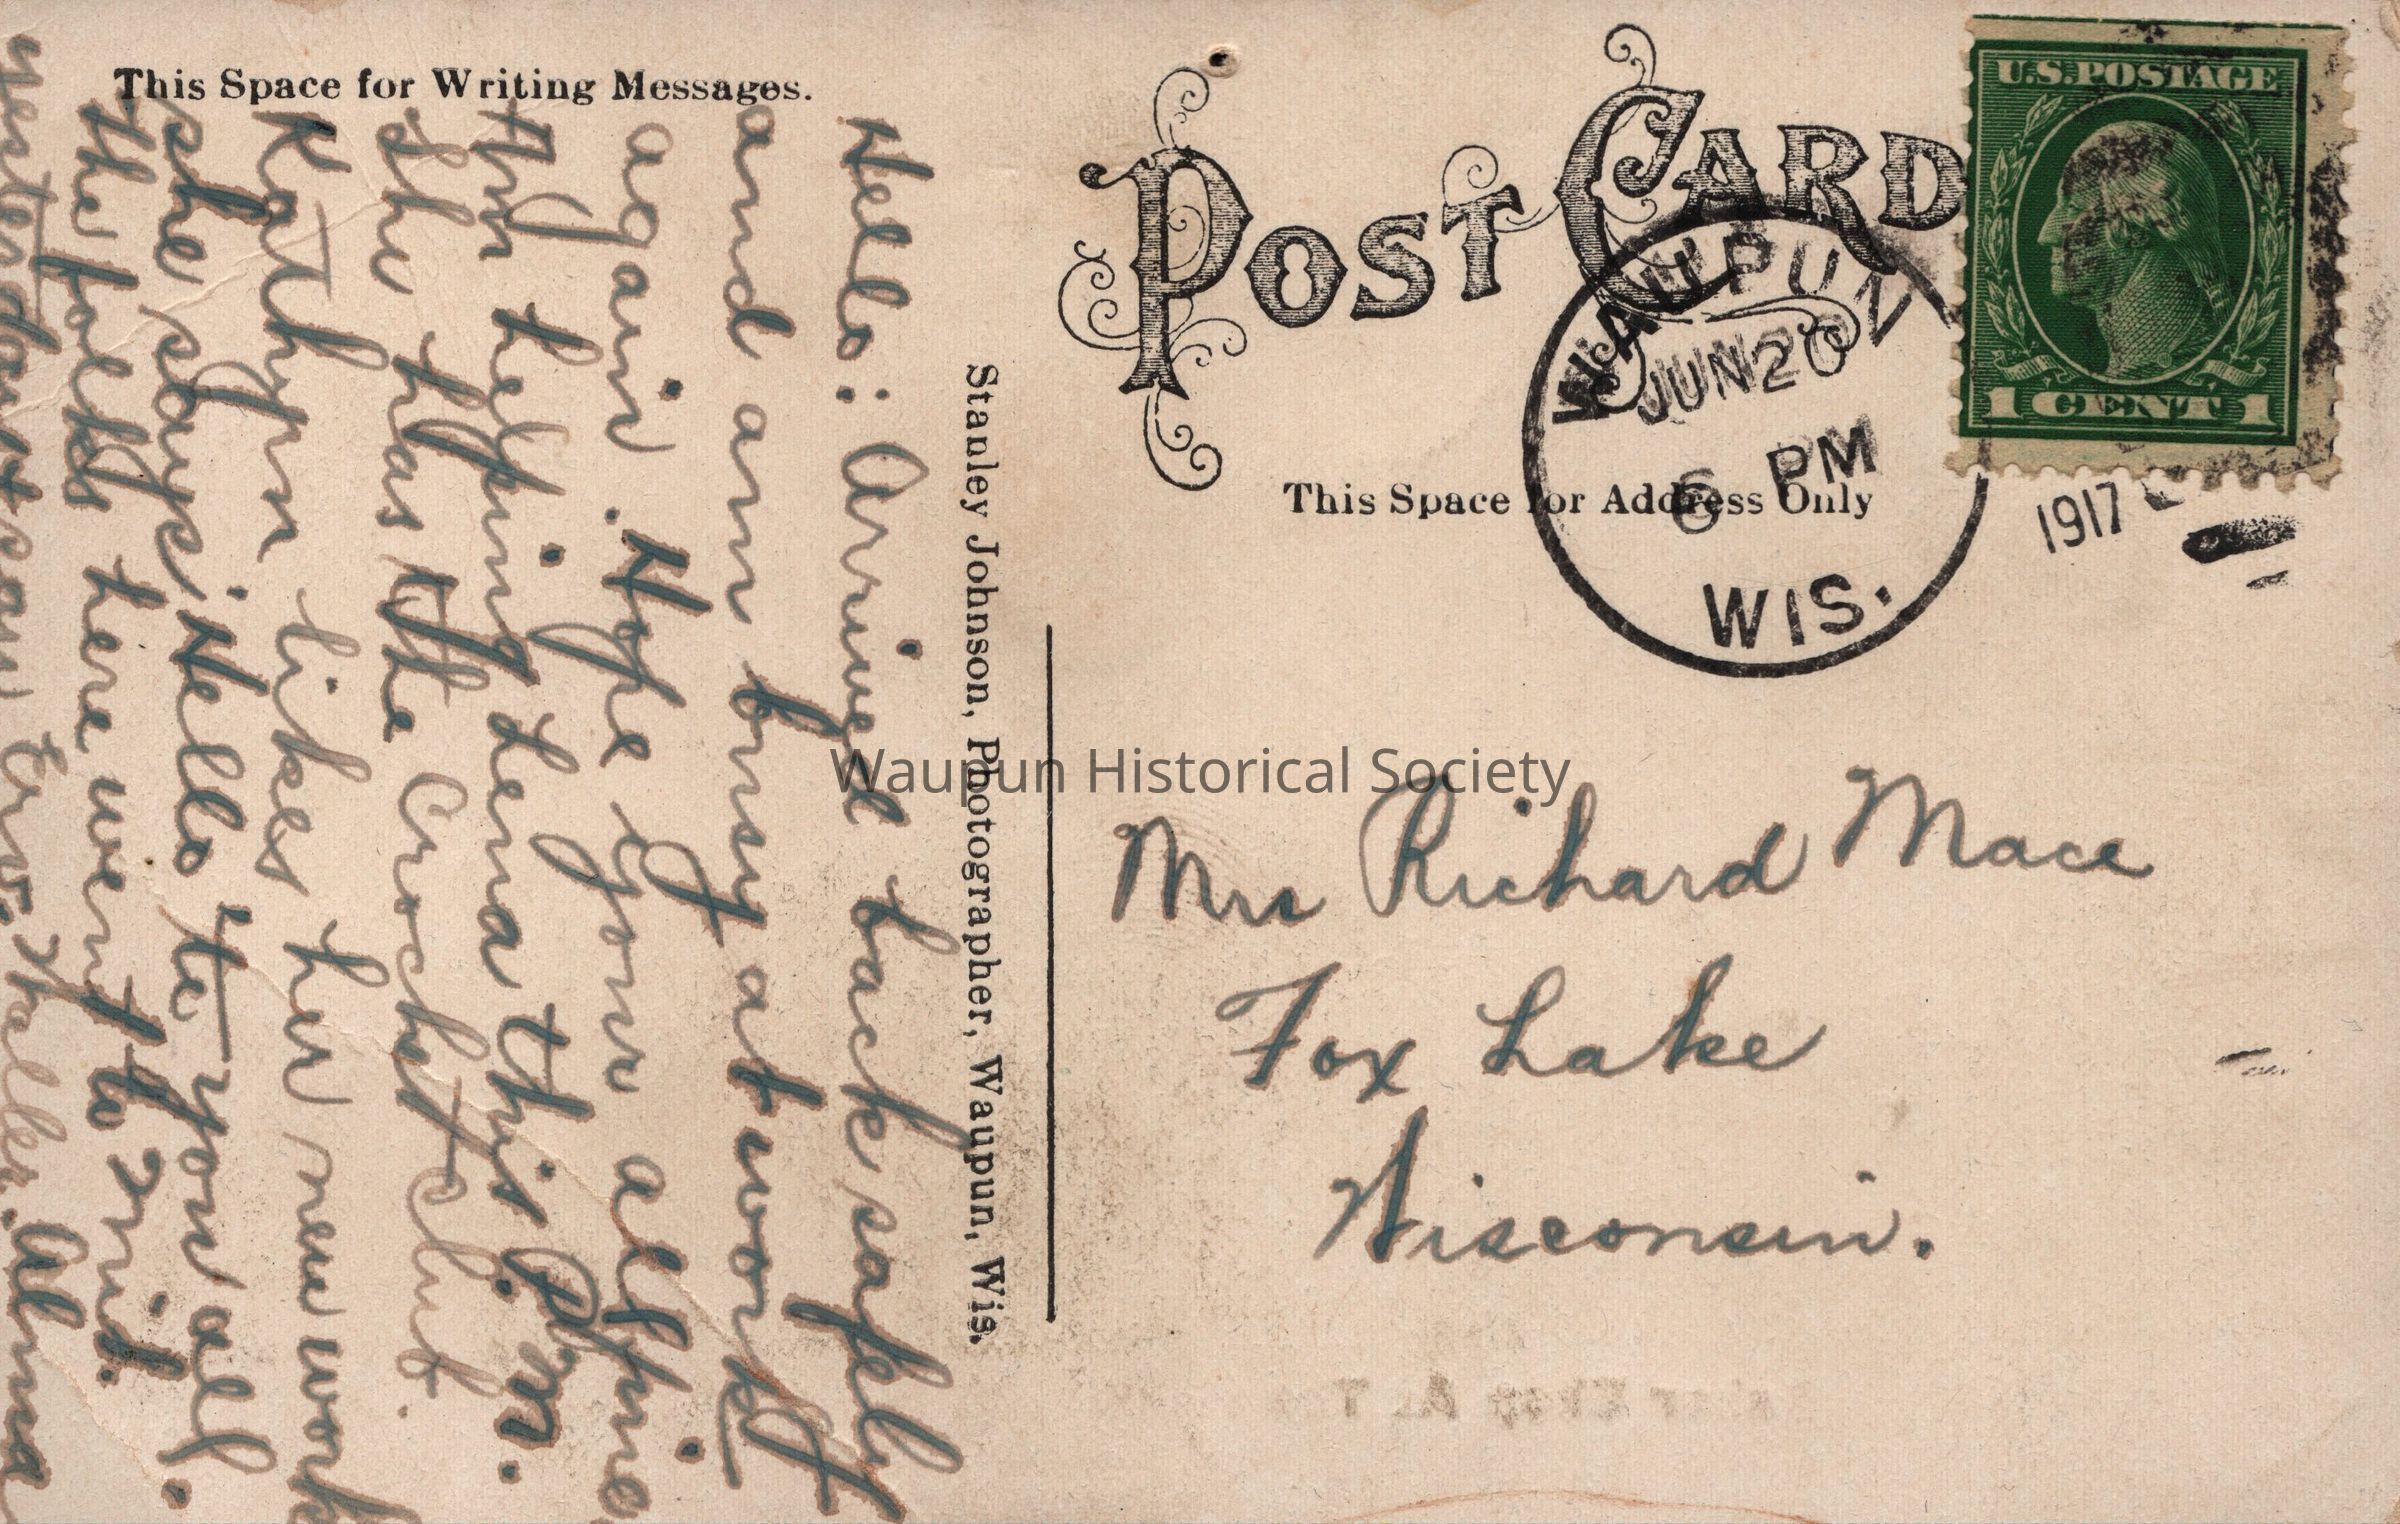 This Space for Writing Messages.
Hello: Arrived back safely
and am busy at work
again. Hope your all fine
Am helping Lena this P.M.
She has the Crochet club
Kathryn likes her new work
she says. Hello to you all.
The folks here went to
yesterday + saw Alma
Stanley Johnson, Photographer, Waupun, Wis.
POST CARD
This Space for Address Only
U.S. POSTAGE
1 CENT 1
WAUPUN
JUN 20
6 PM
1917
WIS.
Mrs Richard Mace
Fox Lake
Wisconsin.
Waupun Historical Society